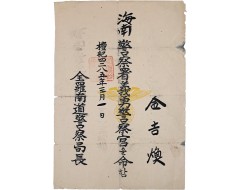 金吉煥
海南警察署義勇警察官を命함
檀紀四二八五年三月一日
全羅南道警察局長